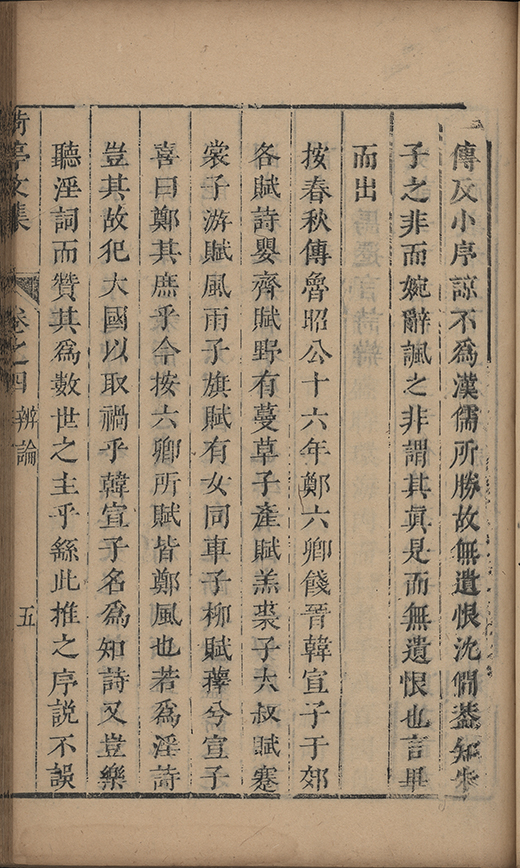 傳及小序諒不為漢儒所勝故無遺恨沈僩葢知朱
子之非而婉辭諷之非謂其眞是而無遺恨也言畢
而出
按春秋傳魯昭公十六年鄭六卿餞晉韓宣子于郊
各賦詩嬰齊賦野有蔓草子產賦羔裘子大叔賦褰
裳子游賦風雨子旗賦有女同車子柳賦蘀兮宣子
喜曰鄭其庶乎今按六卿所賦皆鄭風也若為淫詩
豈其故犯大國以取禍乎韓宣子名為知詩又豈樂
聽淫詞而贊其為數世之主乎繇此推之序說不誤
亭文集 卷之四 辨論 五